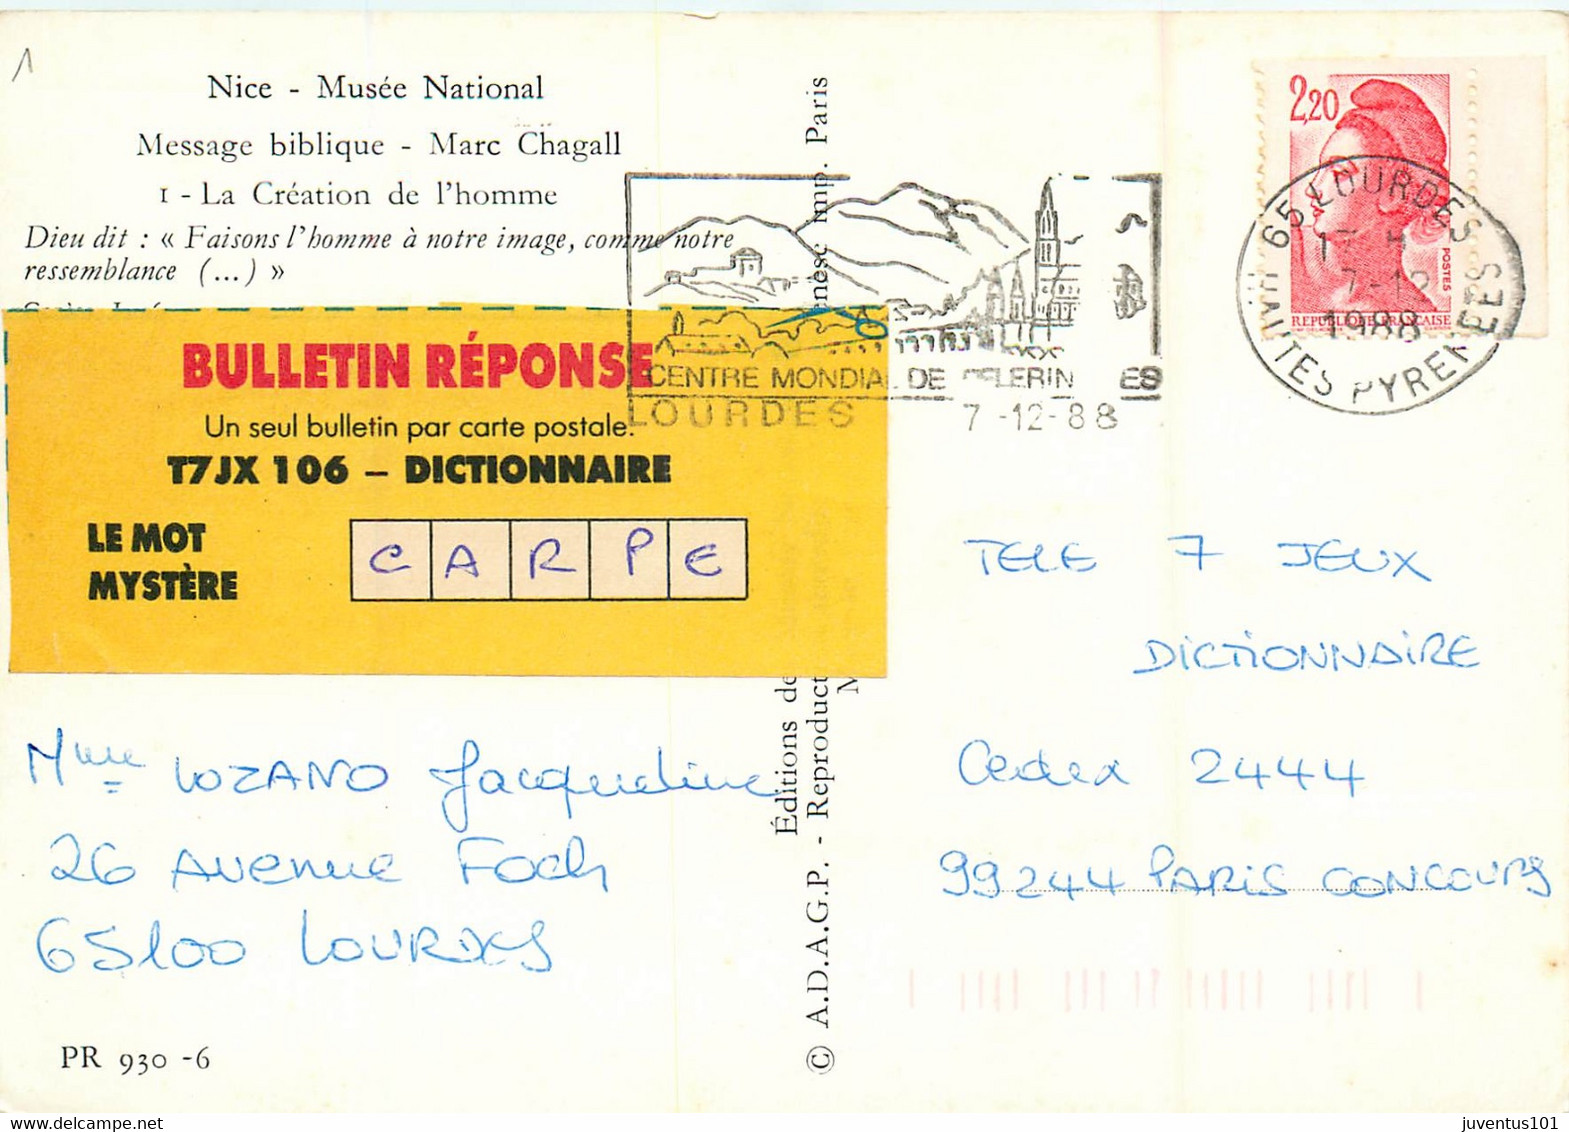 1
Nice - Musée National
Message biblique - Marc Chagall
1 - La Création de l'homme
Dieu dit : « Faisons l'homme à notre image, comme notre
ressemblance (...) »
BULLETIN RÉPONSE
Un seul bulletin par carte postale.
T7JX 106 – DICTIONNAIRE
LE MOT
MYSTÈRE
C A R P E
Mme LOZANO Jacqueline
26 Avenue Foch
65100 LOURDES
PR 930 -6
Éditions de
© A.D.A.G.P. - Reproduct
imp. Paris
CENTRE MONDIAL DE
LOURDES 7-12-88
2,20
POSTES
REPUBLIQUE FRANÇAISE
65 LOURDES
7-12
1988
HAUTES PYRENEES
TELE 7 JEUX
DICTIONNAIRE
Cedex 2444
99244 PARIS CONCOURS
juventus101